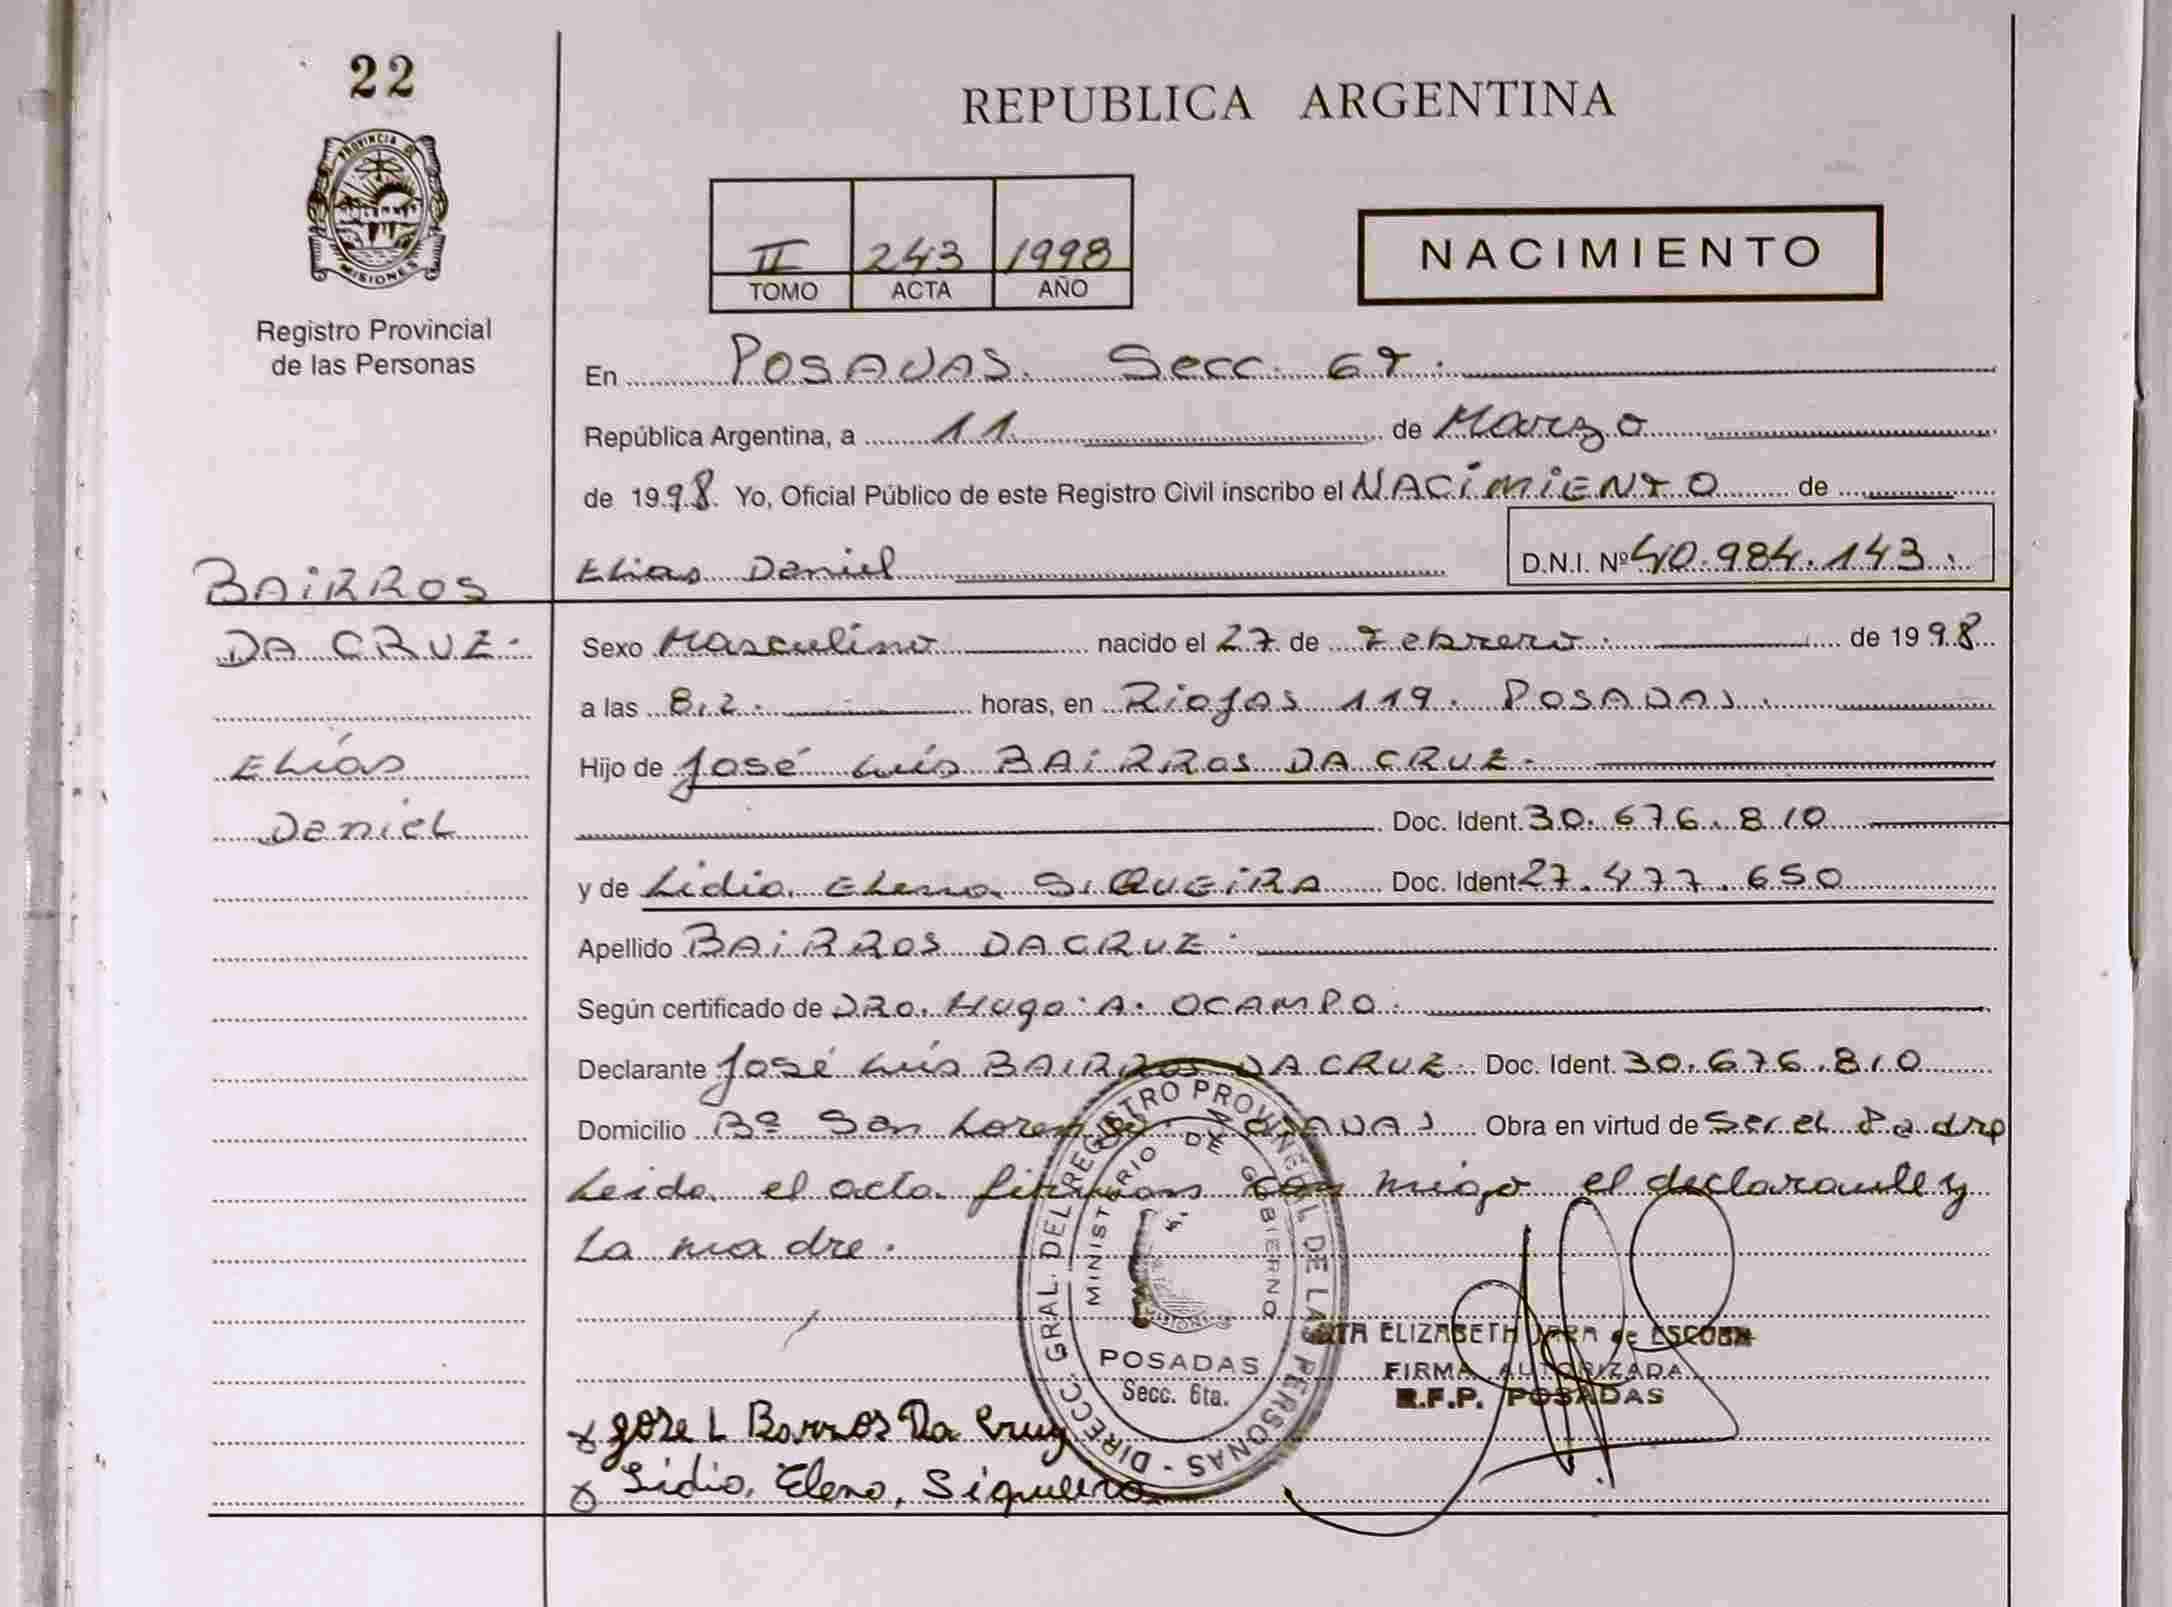 22
PROVINCIA DE
MISIONES
Registro Provincial
de las Personas
REPUBLICA ARGENTINA
II 243 1998
TOMO ACTA AÑO
NACIMIENTO
En POSADAS. Secc. 6ta.
República Argentina, a 11 de Marzo
de 1998. Yo, Oficial Público de este Registro Civil inscribo el NACIMIENTO de
Elias Daniel D.N.I. Nº 40.984.143.
BAIRROS
DA CRUZ.
Elías
Daniel
Sexo Masculino nacido el 27 de Febrero. de 1998
a las 8,2. horas, en Riojas 119. POSADAS.
Hijo de José Luis BAIRROS DA CRUZ.
Doc. Ident. 30.676.810
y de Lidia Elena SIQUEIRA Doc. Ident 27.477.650
Apellido BAIRROS DA CRUZ.
Según certificado de DRO. Hugo A. OCAMPO.
Declarante José Luis BAIRROS DA CRUZ. Doc. Ident. 30.676.810
Domicilio Bº San Lorenzo. POSADAS Obra en virtud de Ser el Padre
Leida el acta firman con migo el declarante y
La madre.
DIRECC. GRAL. DEL REGISTRO PROVINCIAL DE LAS PERSONAS -
MINISTERIO DE GOBIERNO
POSADAS
Secc. 6ta.
ELIZABETH de ESCOBAR
FIRMA AUTORIZADA
R.P.P. POSADAS
x Jose L Barros Da Cruz
x Lidia, Elena, Siqueira